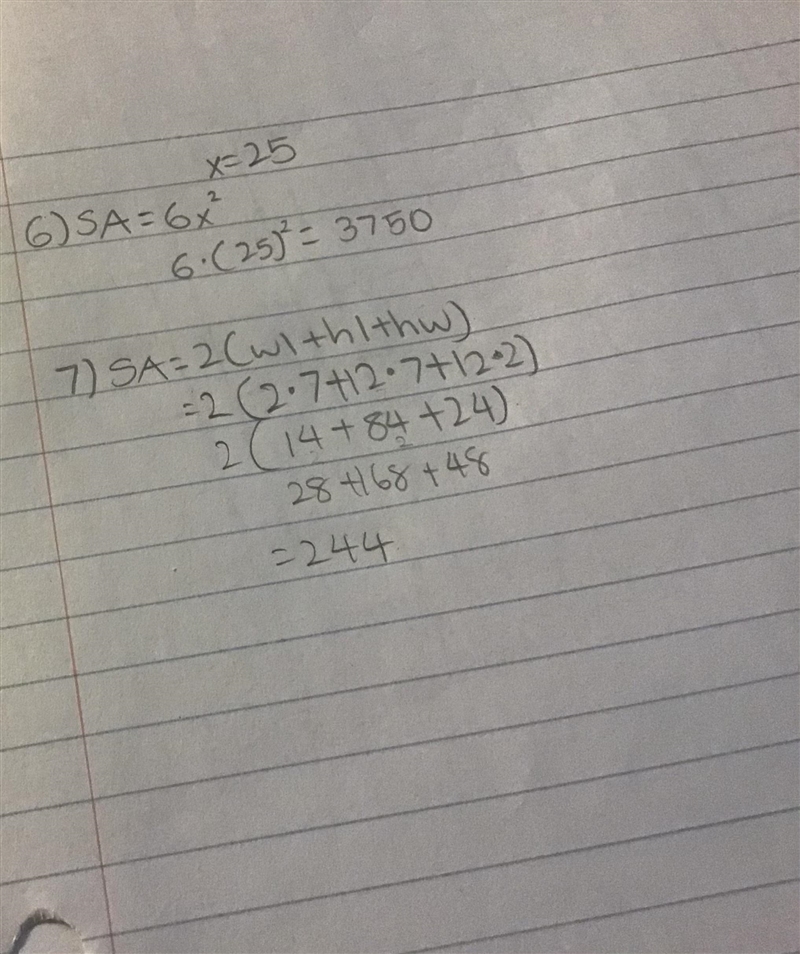 x=25
6) SA = 6x²
6·(25)² = 3750
7) SA = 2(wl+hl+hw)
=2(2·7+12·7+12·2)
2(14+84+24)
28+168+48
=244